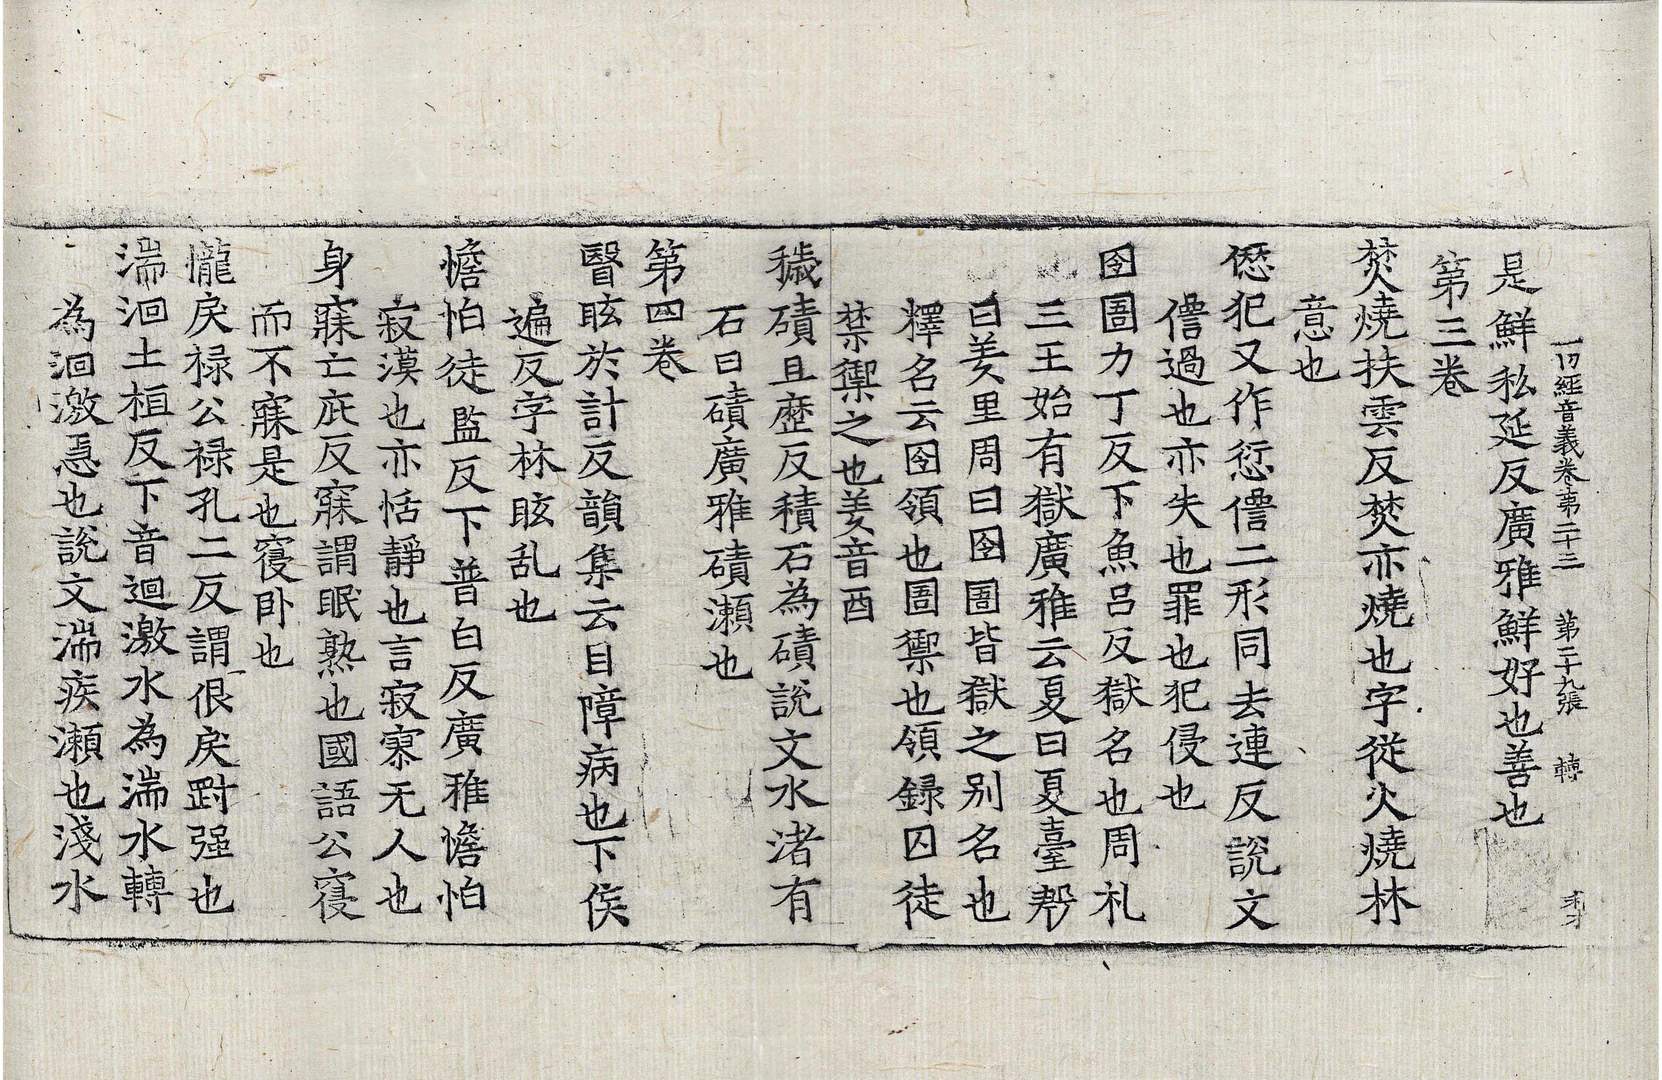 一切經音義卷第二十三 第二十九張 轉
是鮮私延反廣雅鮮好也善也
第三卷
焚燒扶雲反焚亦燒也字從火燒林
意也
僁犯又作愆㒽二形同去連反說文
㒽過也亦失也罪也犯侵也
囹圄力丁反下魚呂反獄名也周礼
三王始有獄廣雅云夏曰夏臺殷
曰羑里周曰囹圄皆獄之别名也
釋名云囹領也圄禦也領録囚徒
禁禦之也羑音酉
穢磧且歷反積石為磧說文水渚有
石曰磧廣雅磧瀬也
第四卷
瞖眩於計反韻集云目障病也下侯
遍反字林眩乱也
憺怕徒監反下普白反廣雅憺怕
寂漠也亦恬靜也言寂寞无人也
身寐亡庇反寐謂眠熟也國語公寑
而不寐是也寑卧也
儱戾禄公禄孔二反謂很戾㓸强也
湍洄土桓反下音迴激水為湍水轉
為洄激急也說文湍疾瀬也淺水